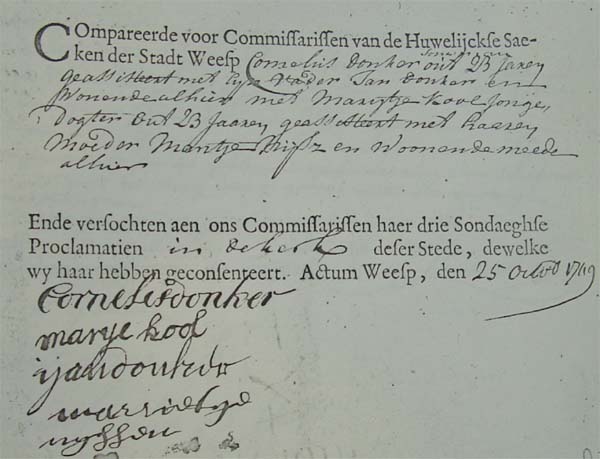 COmpareerde voor Commissarissen van de Huwelijckse Sae-
ken der Stadt Weesp Cornelius donker out 23 Jaaren
geassisteert met syn Vader Jan donker en
Wonende alhier met Marijtje Kool Jonge
Dogter out 23 Jaaren geassisteert met haaren
Moeder Mantje en Woonende meede
alhier
Ende versochten aen ons Commissarissen haer drie Sondaeghse
Proclamatien in de kerk deser Stede, dewelke
wy haar hebben geconsenteert. Actum Weesp, den 25
Cornelis donker
marye kool
ijan donker
marrietye
nyssen